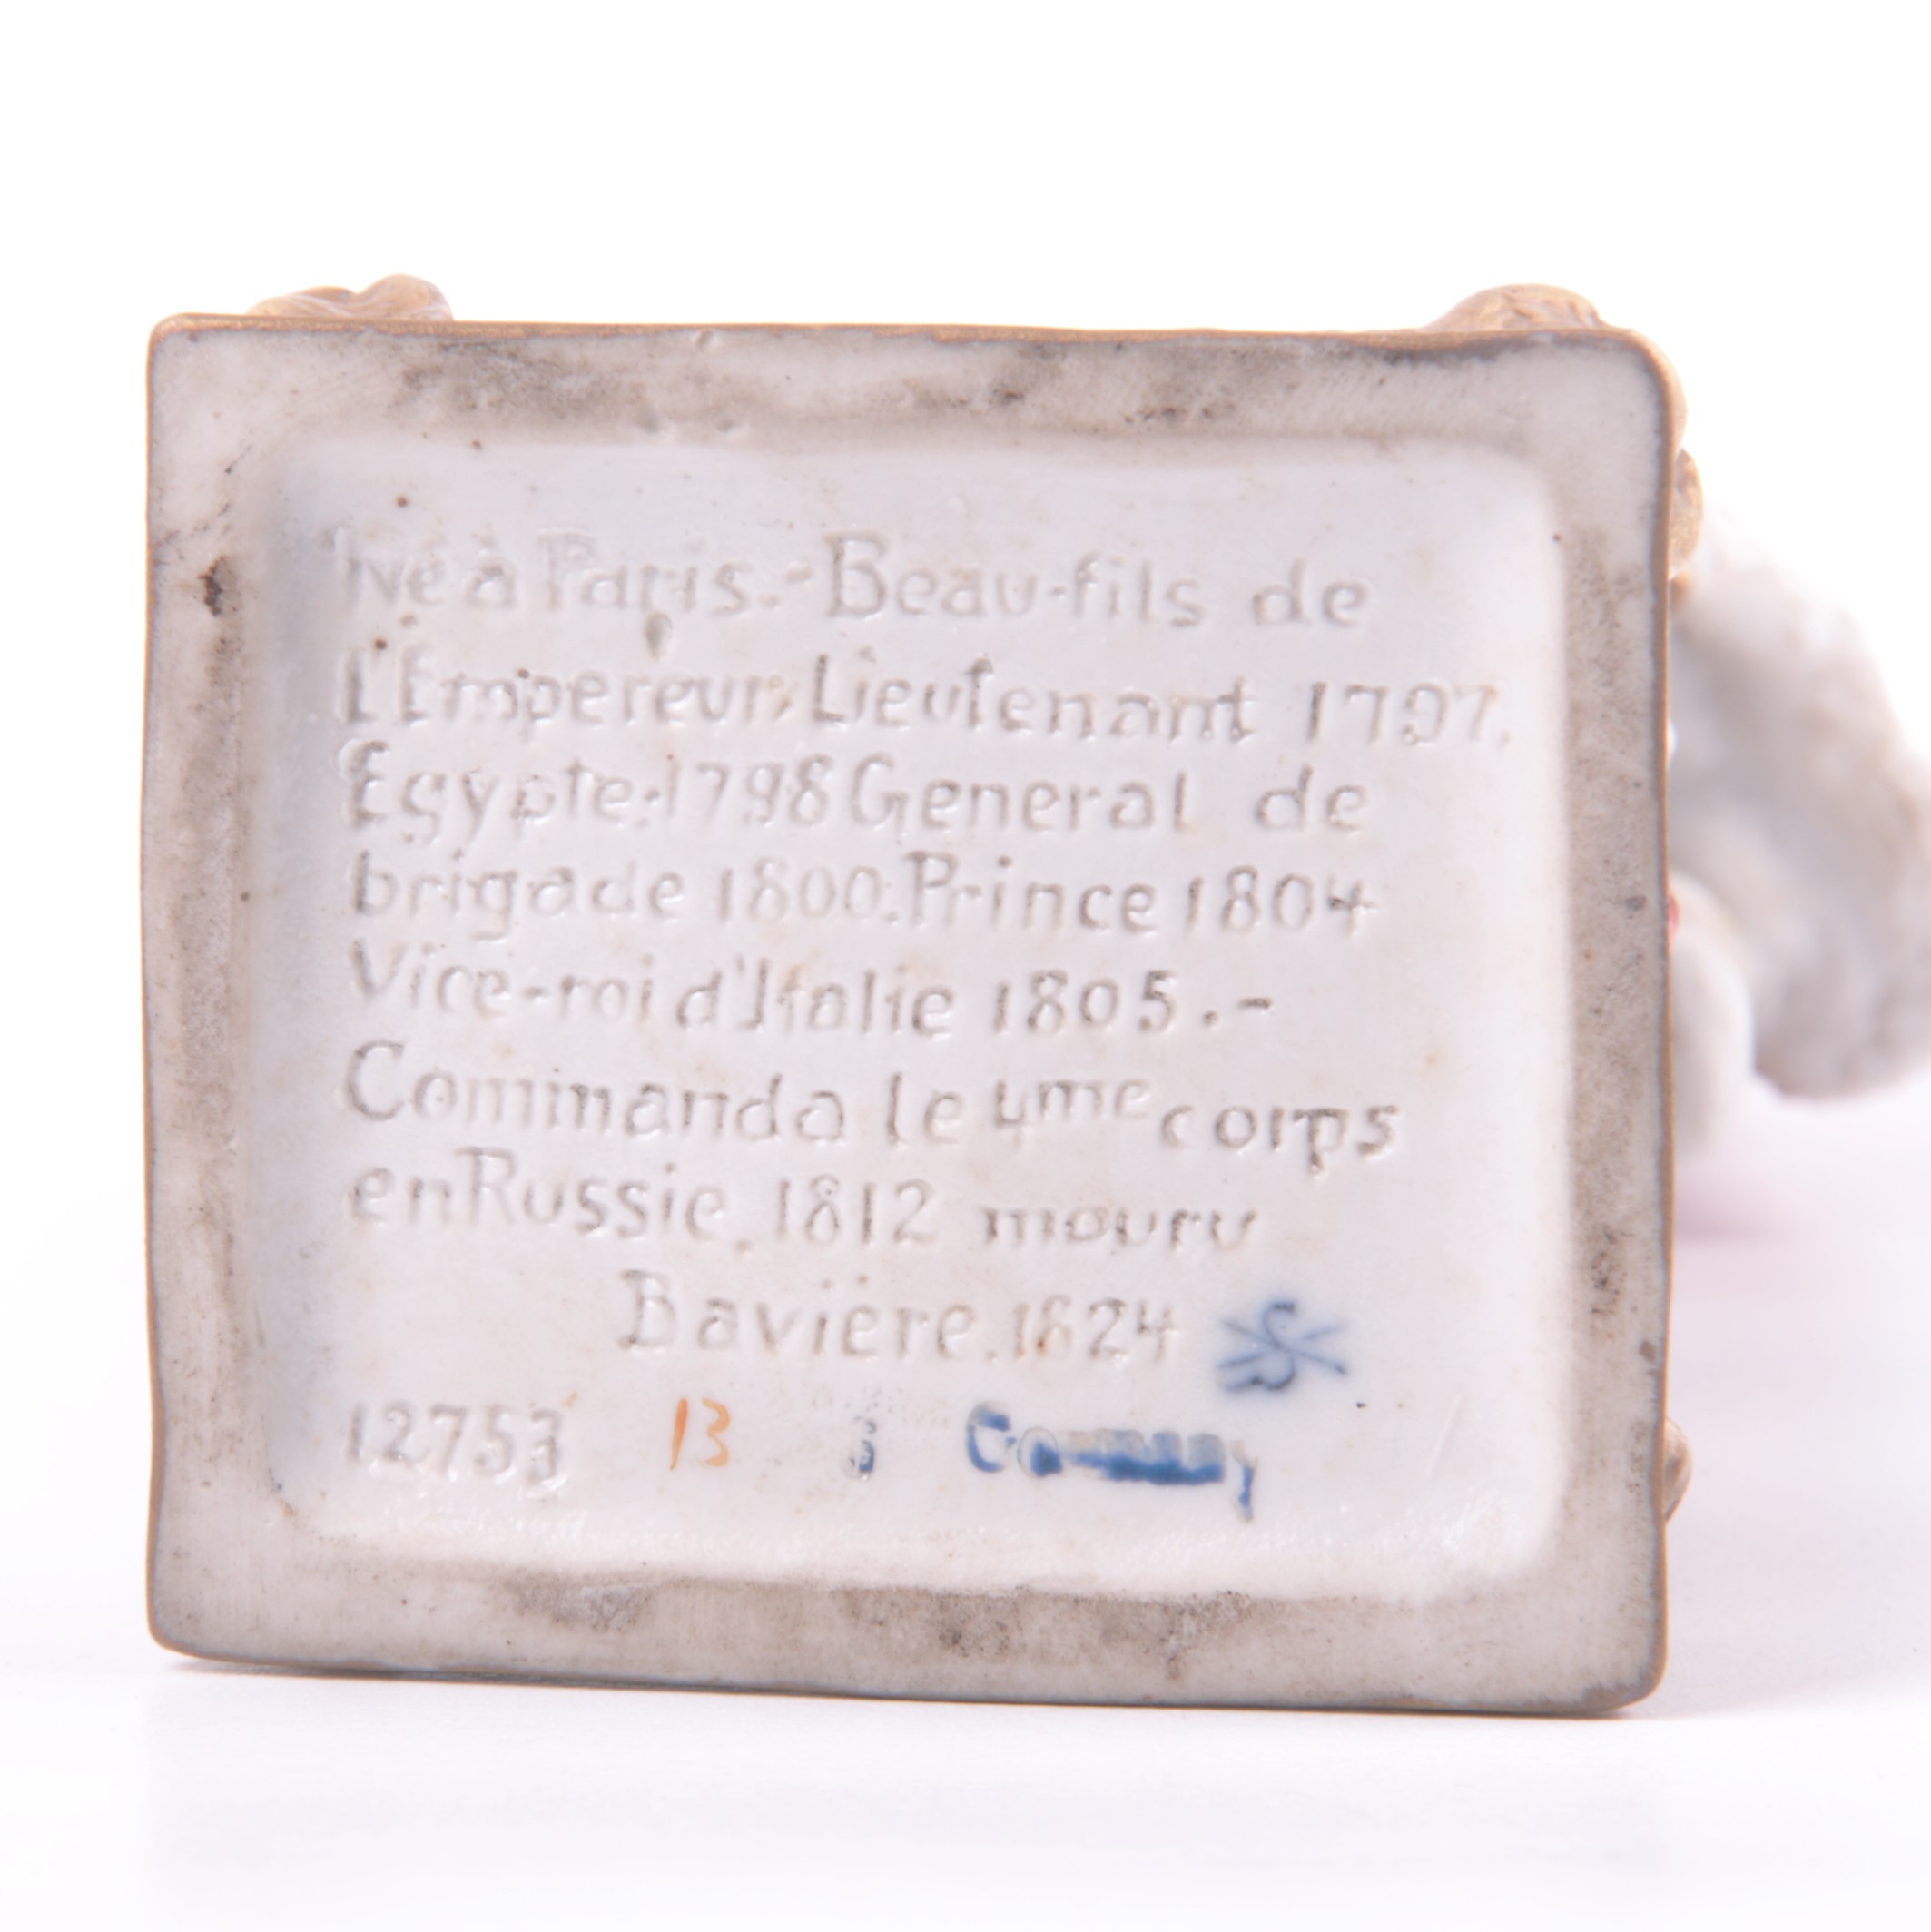 Né à Paris.-Beau-fils de
l'Empereur, Lieutenant 1797.
Egypte.1798 General de
brigade 1800. Prince 1804
Vice-roi d'Italie 1805.-
Commanda le 4me corps
en Russie. 1812 mouru
Baviere. 1824
12753 13